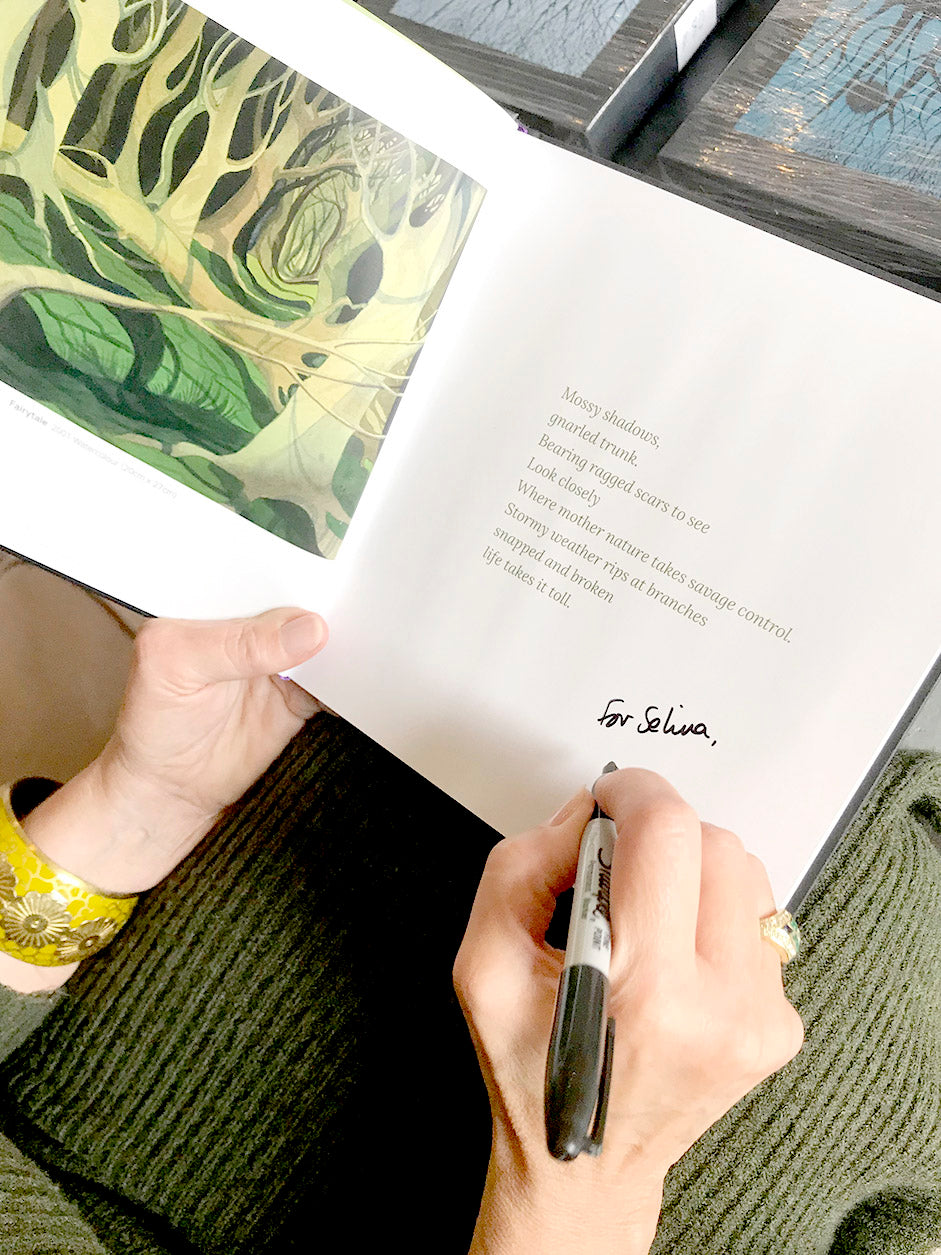 Fairytale 2001 Watercolour (20cm x 27cm)
Mossy shadows,
gnarled trunk.
Bearing ragged scars to see
Look closely
Where mother nature takes savage control.
Stormy weather rips at branches
snapped and broken
life takes it toll.
For Selina,
Sharpie